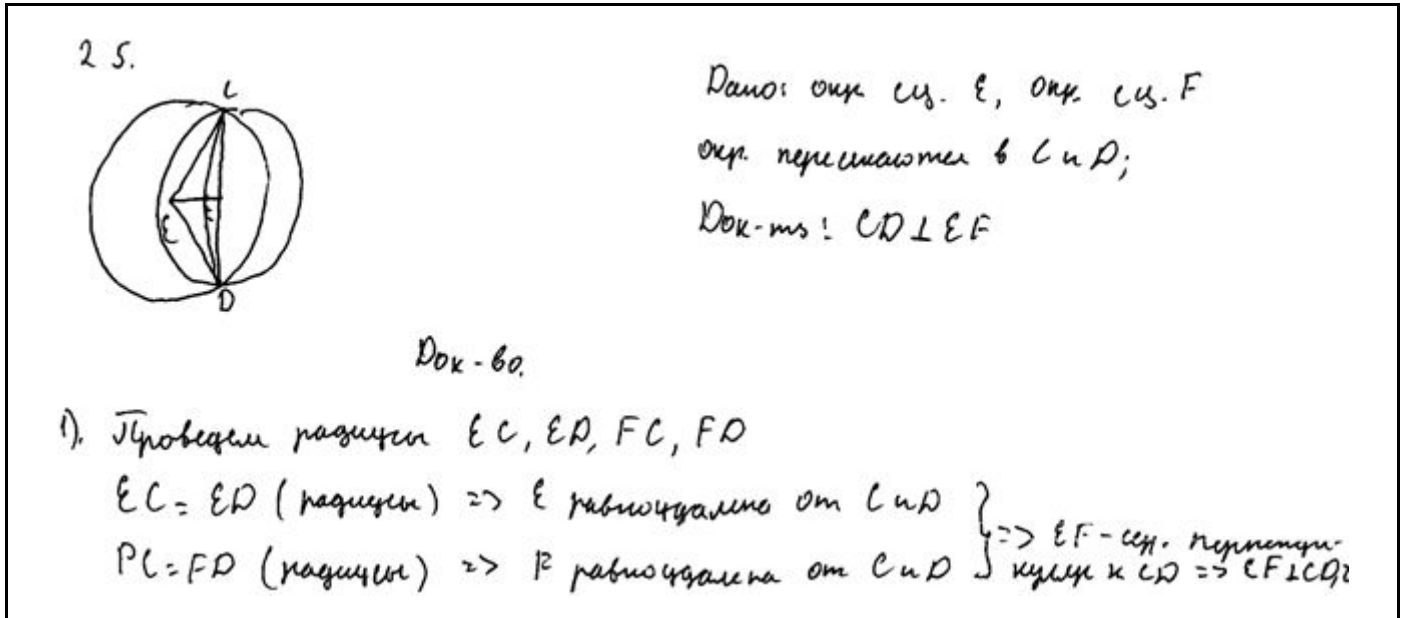 2 5.
C
E
F
D
Дано: окр. с ц. E, окр. с ц. F
окр. пересекаются в C и D;
Док-ть: CD ⊥ EF
Док-во.
1). Проведем радиусы EC, ED, FC, FD
EC = ED (радиусы) => E равноудалена от C и D
FC = FD (радиусы) => F равноудалена от C и D
=> EF - сер. перпенди-
куляр к CD => EF ⊥ CD,